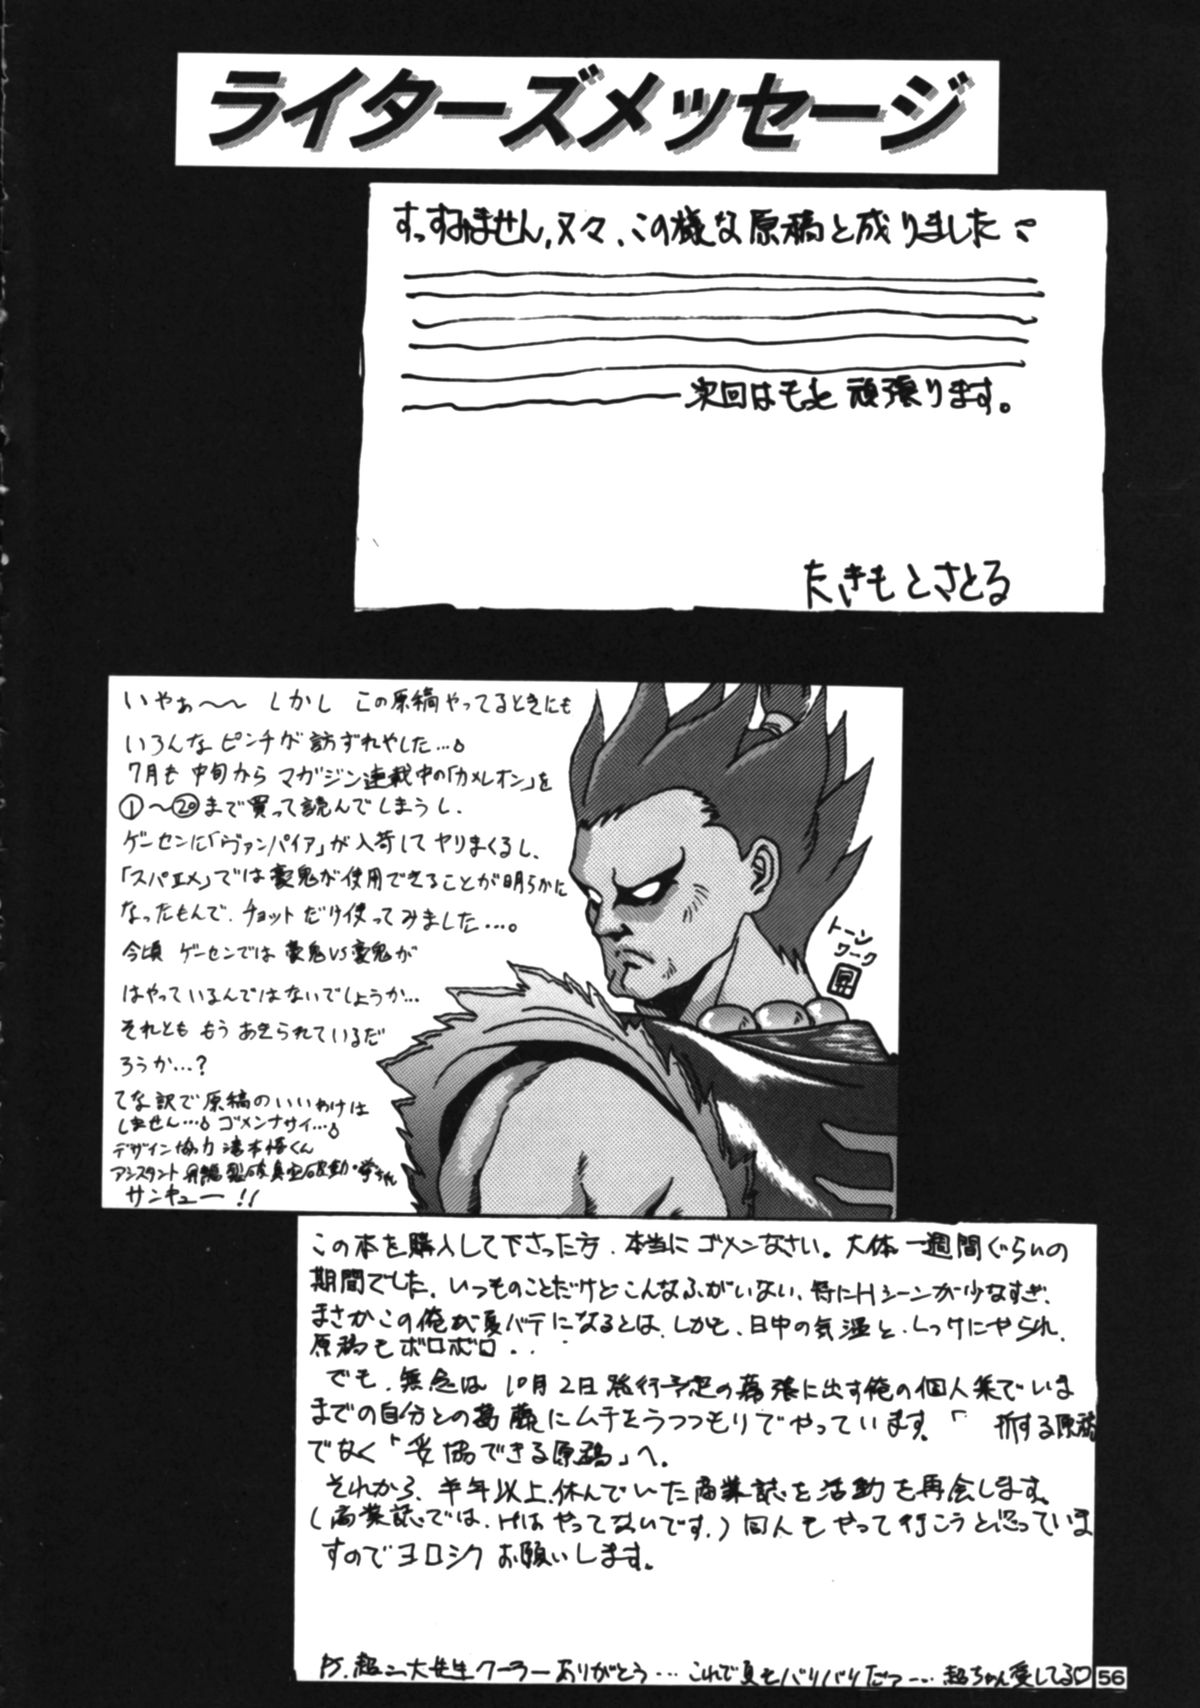 ライターズメッセージ
すっすみません、又々、この様な原稿と成りました
次回はもっと頑張ります。
たきもとさとる
いやぁ〜〜 しかし この原稿やってるときにも
いろんなピンチが訪ずれやした…。
7月も中旬から マガジン連載中の「カメレオン」を
①〜⑳まで買って読んでしまうし、
ゲーセンに「ヴァンパイア」が入荷してヤリまくるし、
「スパエメ」では豪鬼が使用できることが明らかに
なったもんで、チョットだけ使ってみました…。
今頃 ゲーセンでは 豪鬼VS豪鬼が
はやっているんではないでしょうか…
それとも もう あきられているだ
ろうか…?
てな訳で原稿のいいわけは
しません…。ゴメンナサイ…。
デザイン協力 滝本悟くん
アシスタント
サンキュー!!
トーン
ワーク
昇
この本を購入して下さった方、本当にゴメンなさい。大体一週間ぐらいの
期間でした。いつものことだけどこんなふがいない、特にHシーンが少なすぎ、
まさかこの俺が夏バテになるとは、しかも、日中の気温と、しっけにやられ、
原稿もボロボロ・・
でも、無念は10月2日発行予定の幕張に出す俺の個人集でいま
までの自分との葛藤にムチをうつつもりでやっています。「 折する原稿
でなく「妥協できる原稿」へ。
それから、半年以上、休んでいた商業誌を活動を再会します。
(商業誌では、Hはやってないです。)同人もやって行こうと思っていま
すのでヨロシクお願いします。
PS.超二大先生クーラーありがとう…これで夏もバリバリだっ……超ちゃん愛してる♡
56